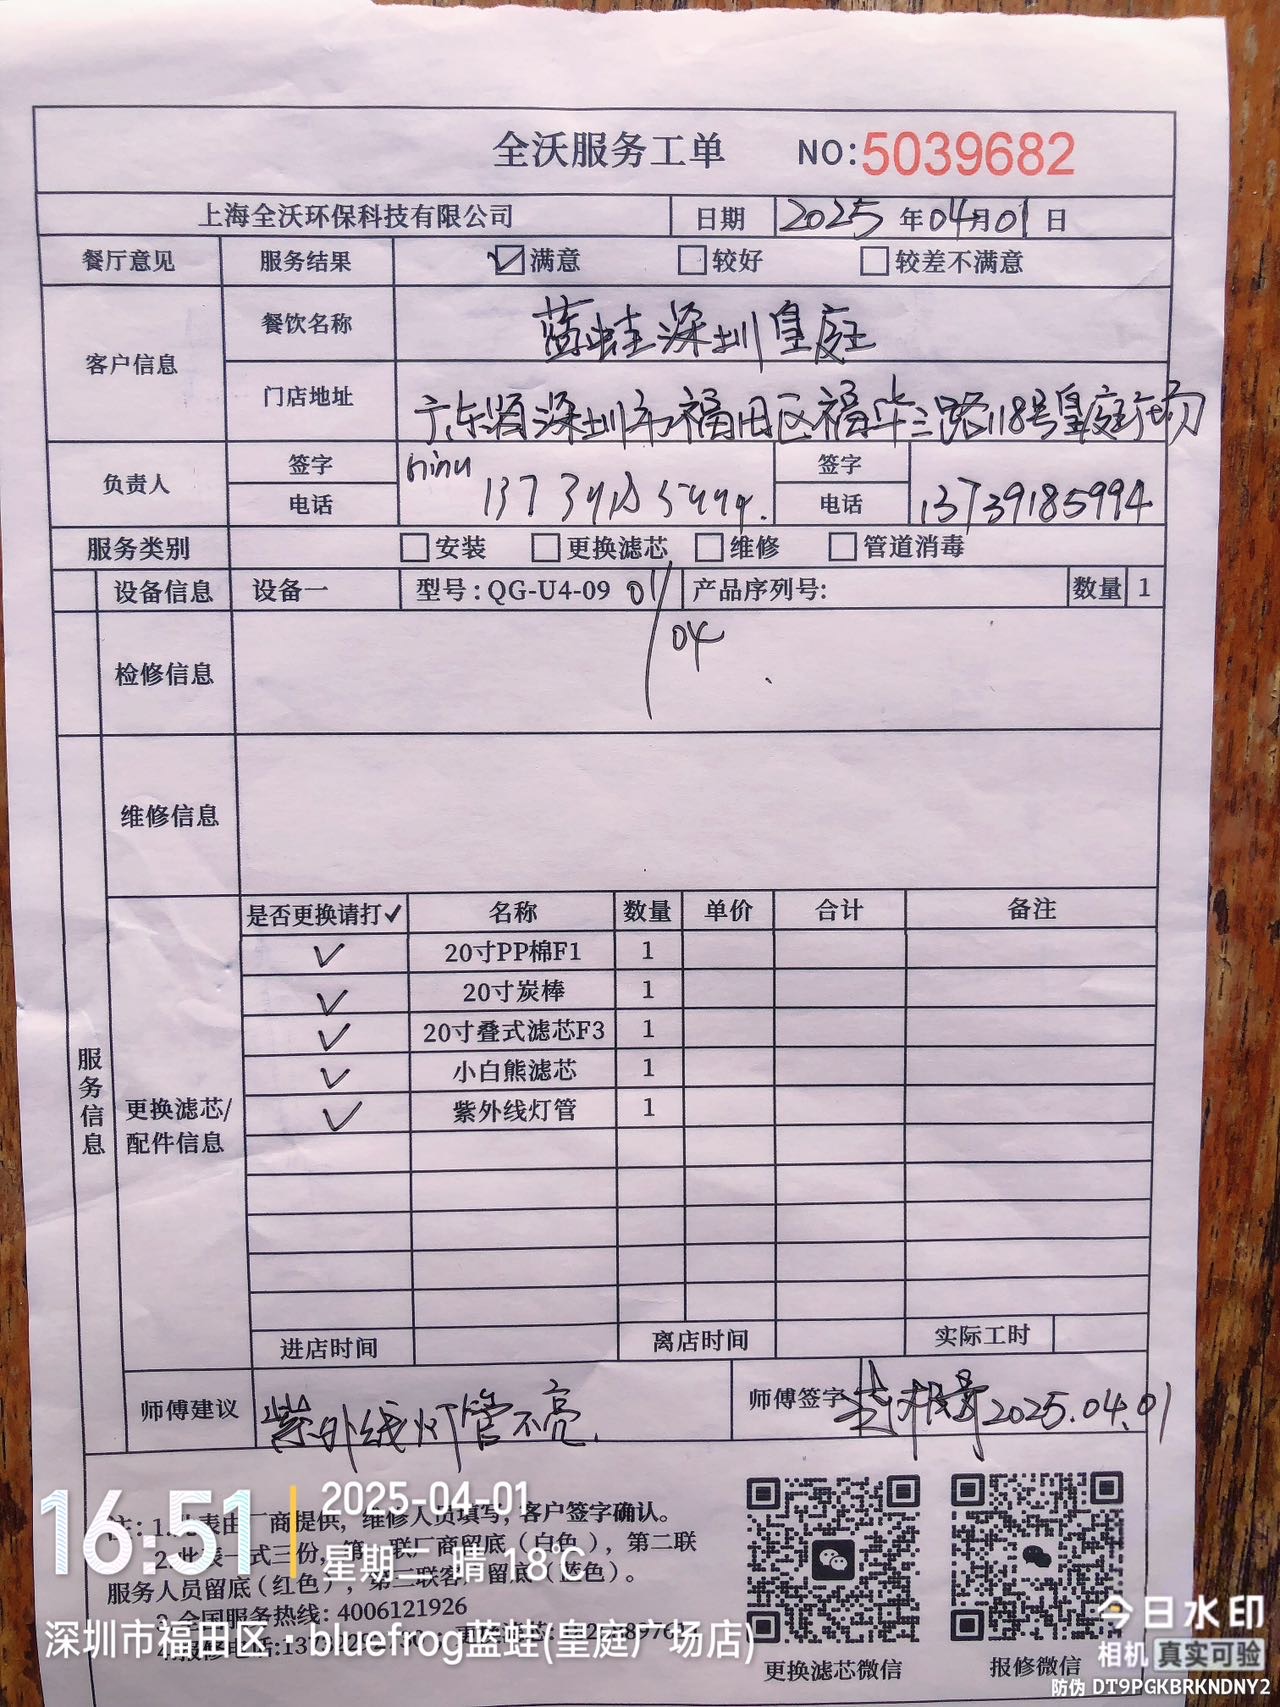 全沃服务工单 NO:5039682
上海全沃环保科技有限公司 日期 2025 年 04 月 01 日
餐厅意见 服务结果 ☑满意 □较好 □较差不满意
客户信息 餐饮名称 蓝蛙深圳皇庭
门店地址 广东省深圳市福田区福华三路118号皇庭广场
负责人 签字 签字
电话 电话 13739185994
服务类别 □安装 □更换滤芯 □维修 □管道消毒
设备信息 设备一 型号:QG-U4-09 产品序列号: 数量 1
01/04
检修信息
维修信息
服务信息
更换滤芯/配件信息
是否更换请打✓ 名称 数量 单价 合计 备注
✓ 20寸PP棉F1 1
✓ 20寸炭棒 1
✓ 20寸叠式滤芯F3 1
✓ 小白熊滤芯 1
✓ 紫外线灯管 1
进店时间 离店时间 实际工时
师傅建议 紫外线灯管不亮. 师傅签字 2025.04.01
注: 1.此表由厂商提供, 维修人员填写, 客户签字确认。
2.此表一式三份, 第一联厂商留底(白色), 第二联
服务人员留底(红色), 第三联客户留底(蓝色)。
3.全国服务热线: 4006121926
4.报修电话:
更换滤芯微信 报修微信
16:51 2025-04-01
星期二 晴 18℃
深圳市福田区·bluefrog蓝蛙(皇庭广场店)
今日水印
相机 真实可验
防伪 DT9PGKBRKNDNY2